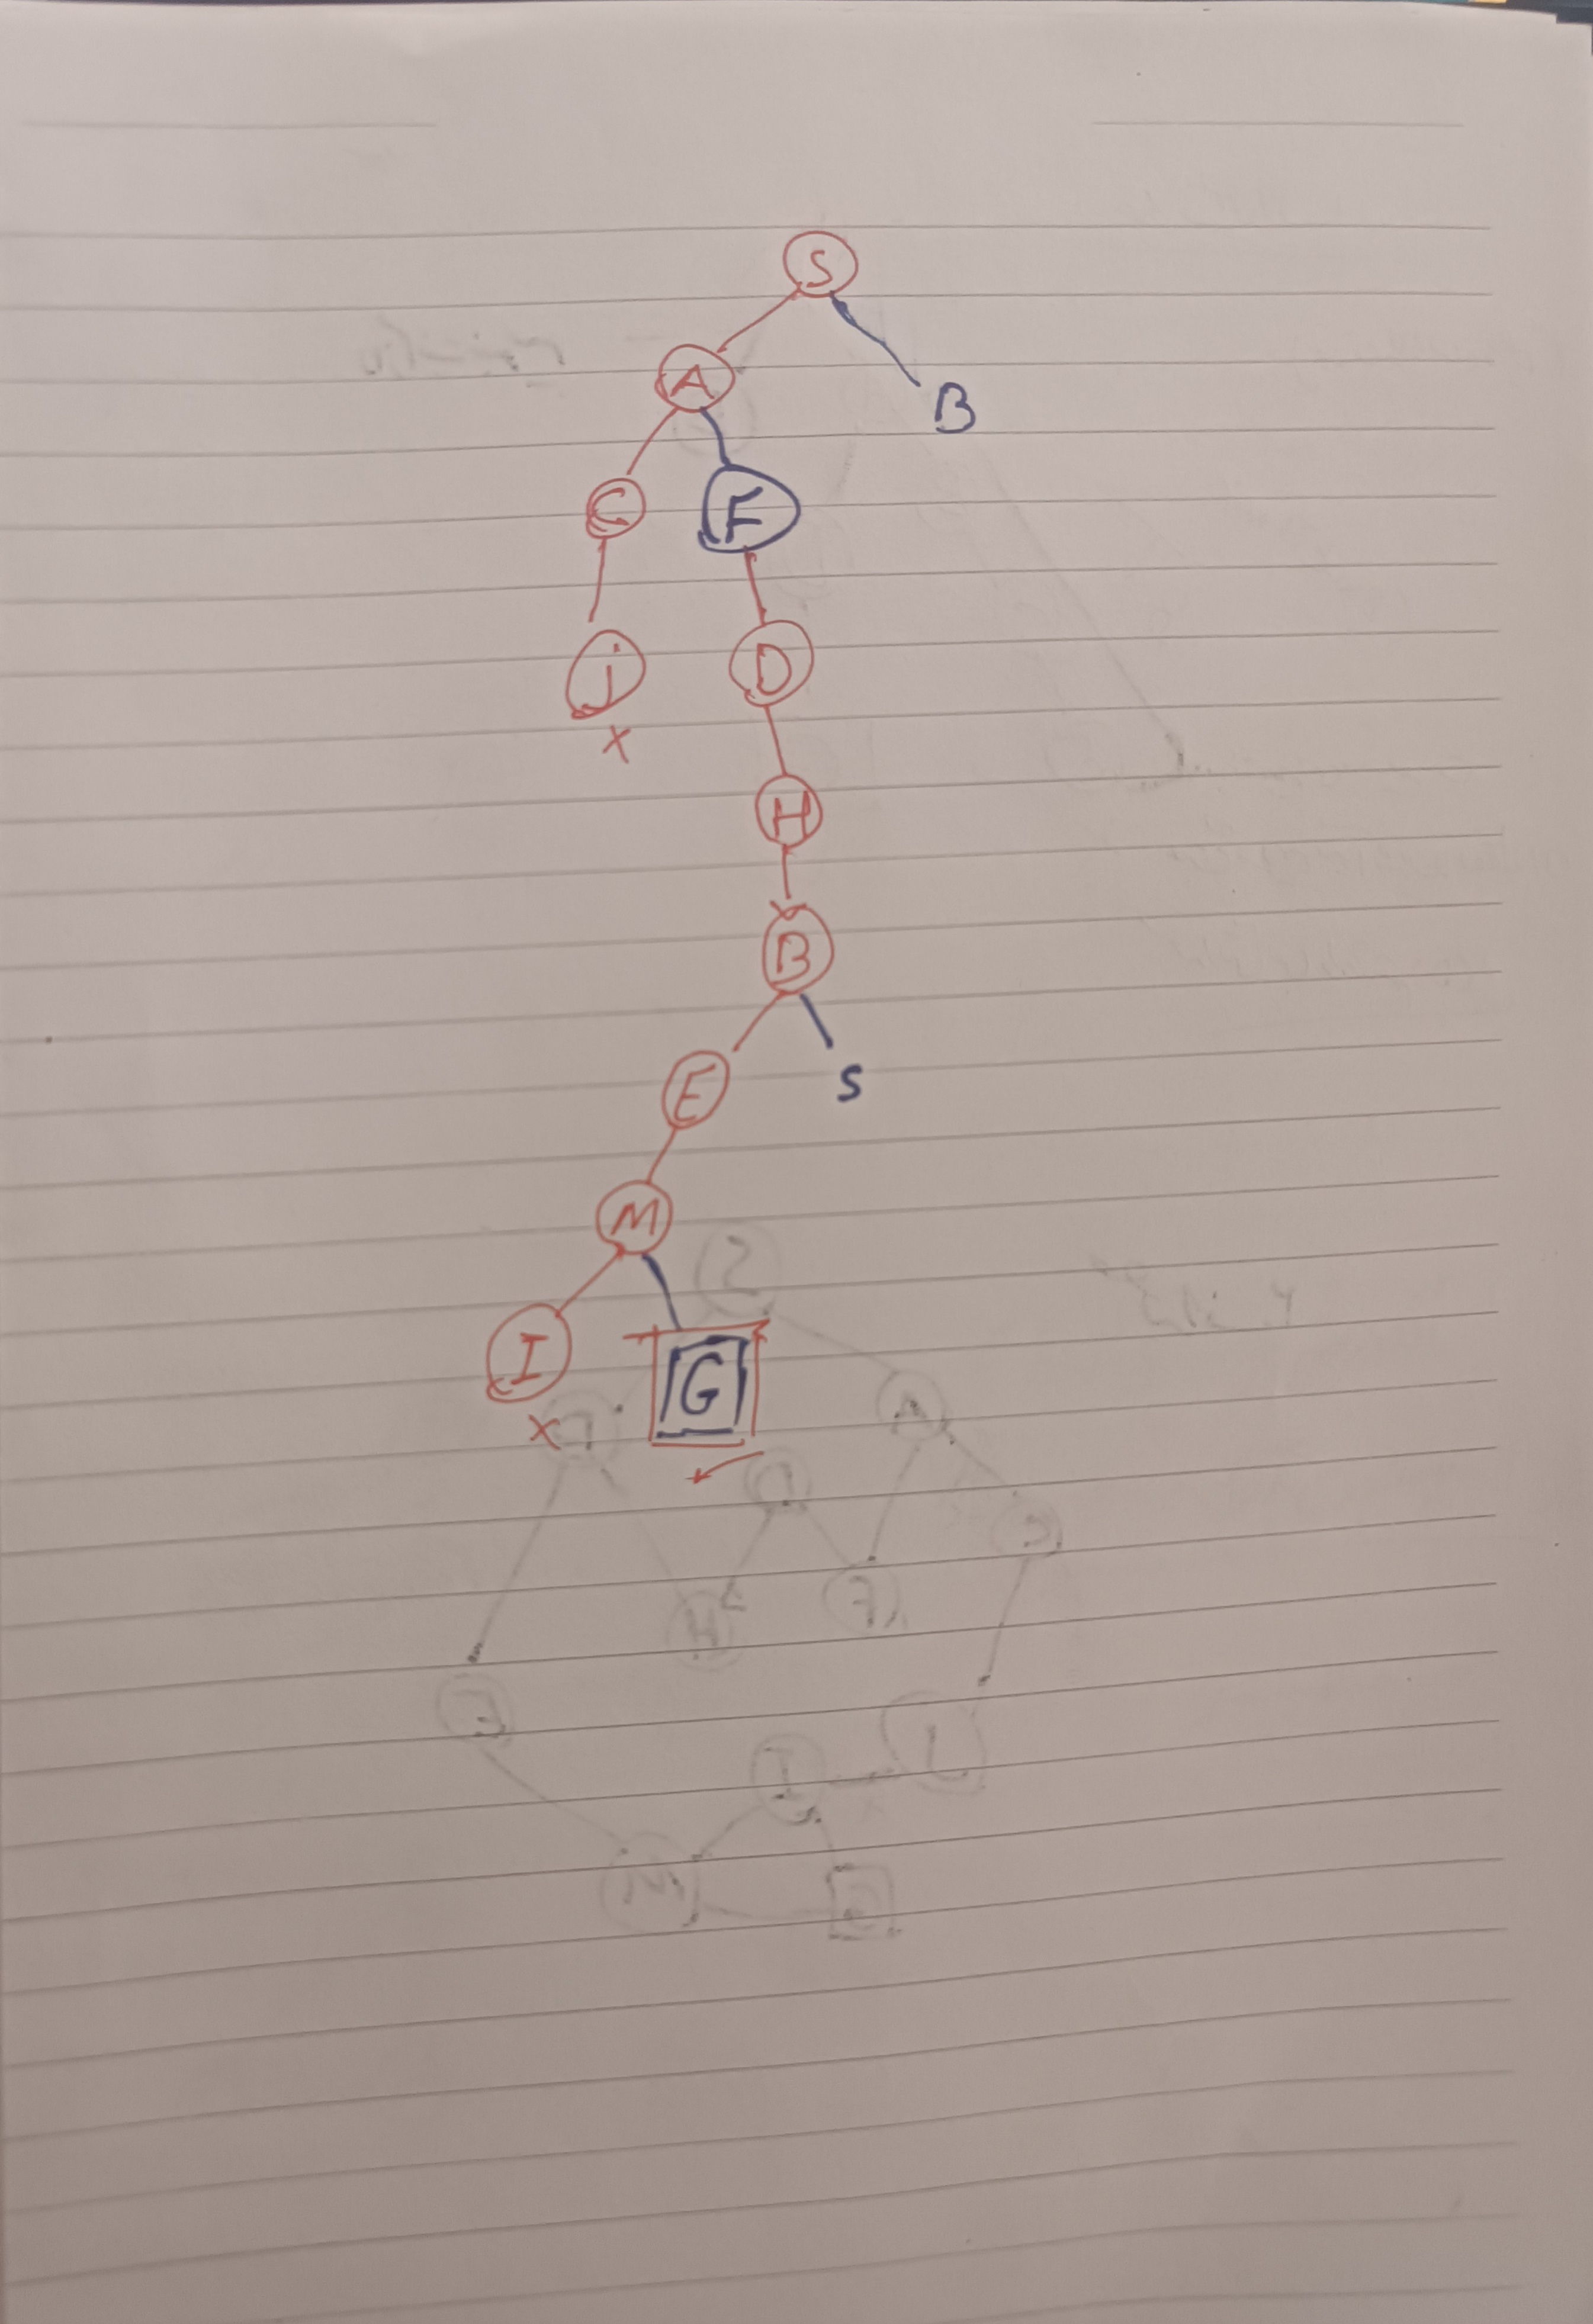 S
A
B
C F
j D
x
H
B
E S
M
I G
x